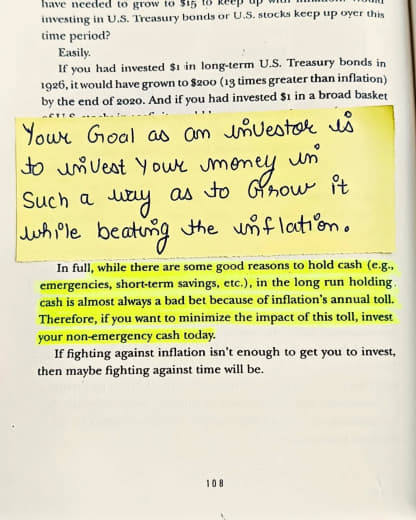 have needed to grow to $15 to keep up with
investing in U.S. Treasury bonds or U.S. stocks keep up over this
time period?
Easily.
If you had invested $1 in long-term U.S. Treasury bonds in
1926, it would have grown to $200 (13 times greater than inflation)
by the end of 2020. And if you had invested $1 in a broad basket
Your Goal as an investor is
to invest Your money in
Such a way as to Grow it
while beating the inflation.
In full, while there are some good reasons to hold cash (e.g.,
emergencies, short-term savings, etc.), in the long run holding
cash is almost always a bad bet because of inflation's annual toll.
Therefore, if you want to minimize the impact of this toll, invest
your non-emergency cash today.
If fighting against inflation isn't enough to get you to invest,
then maybe fighting against time will be.
108